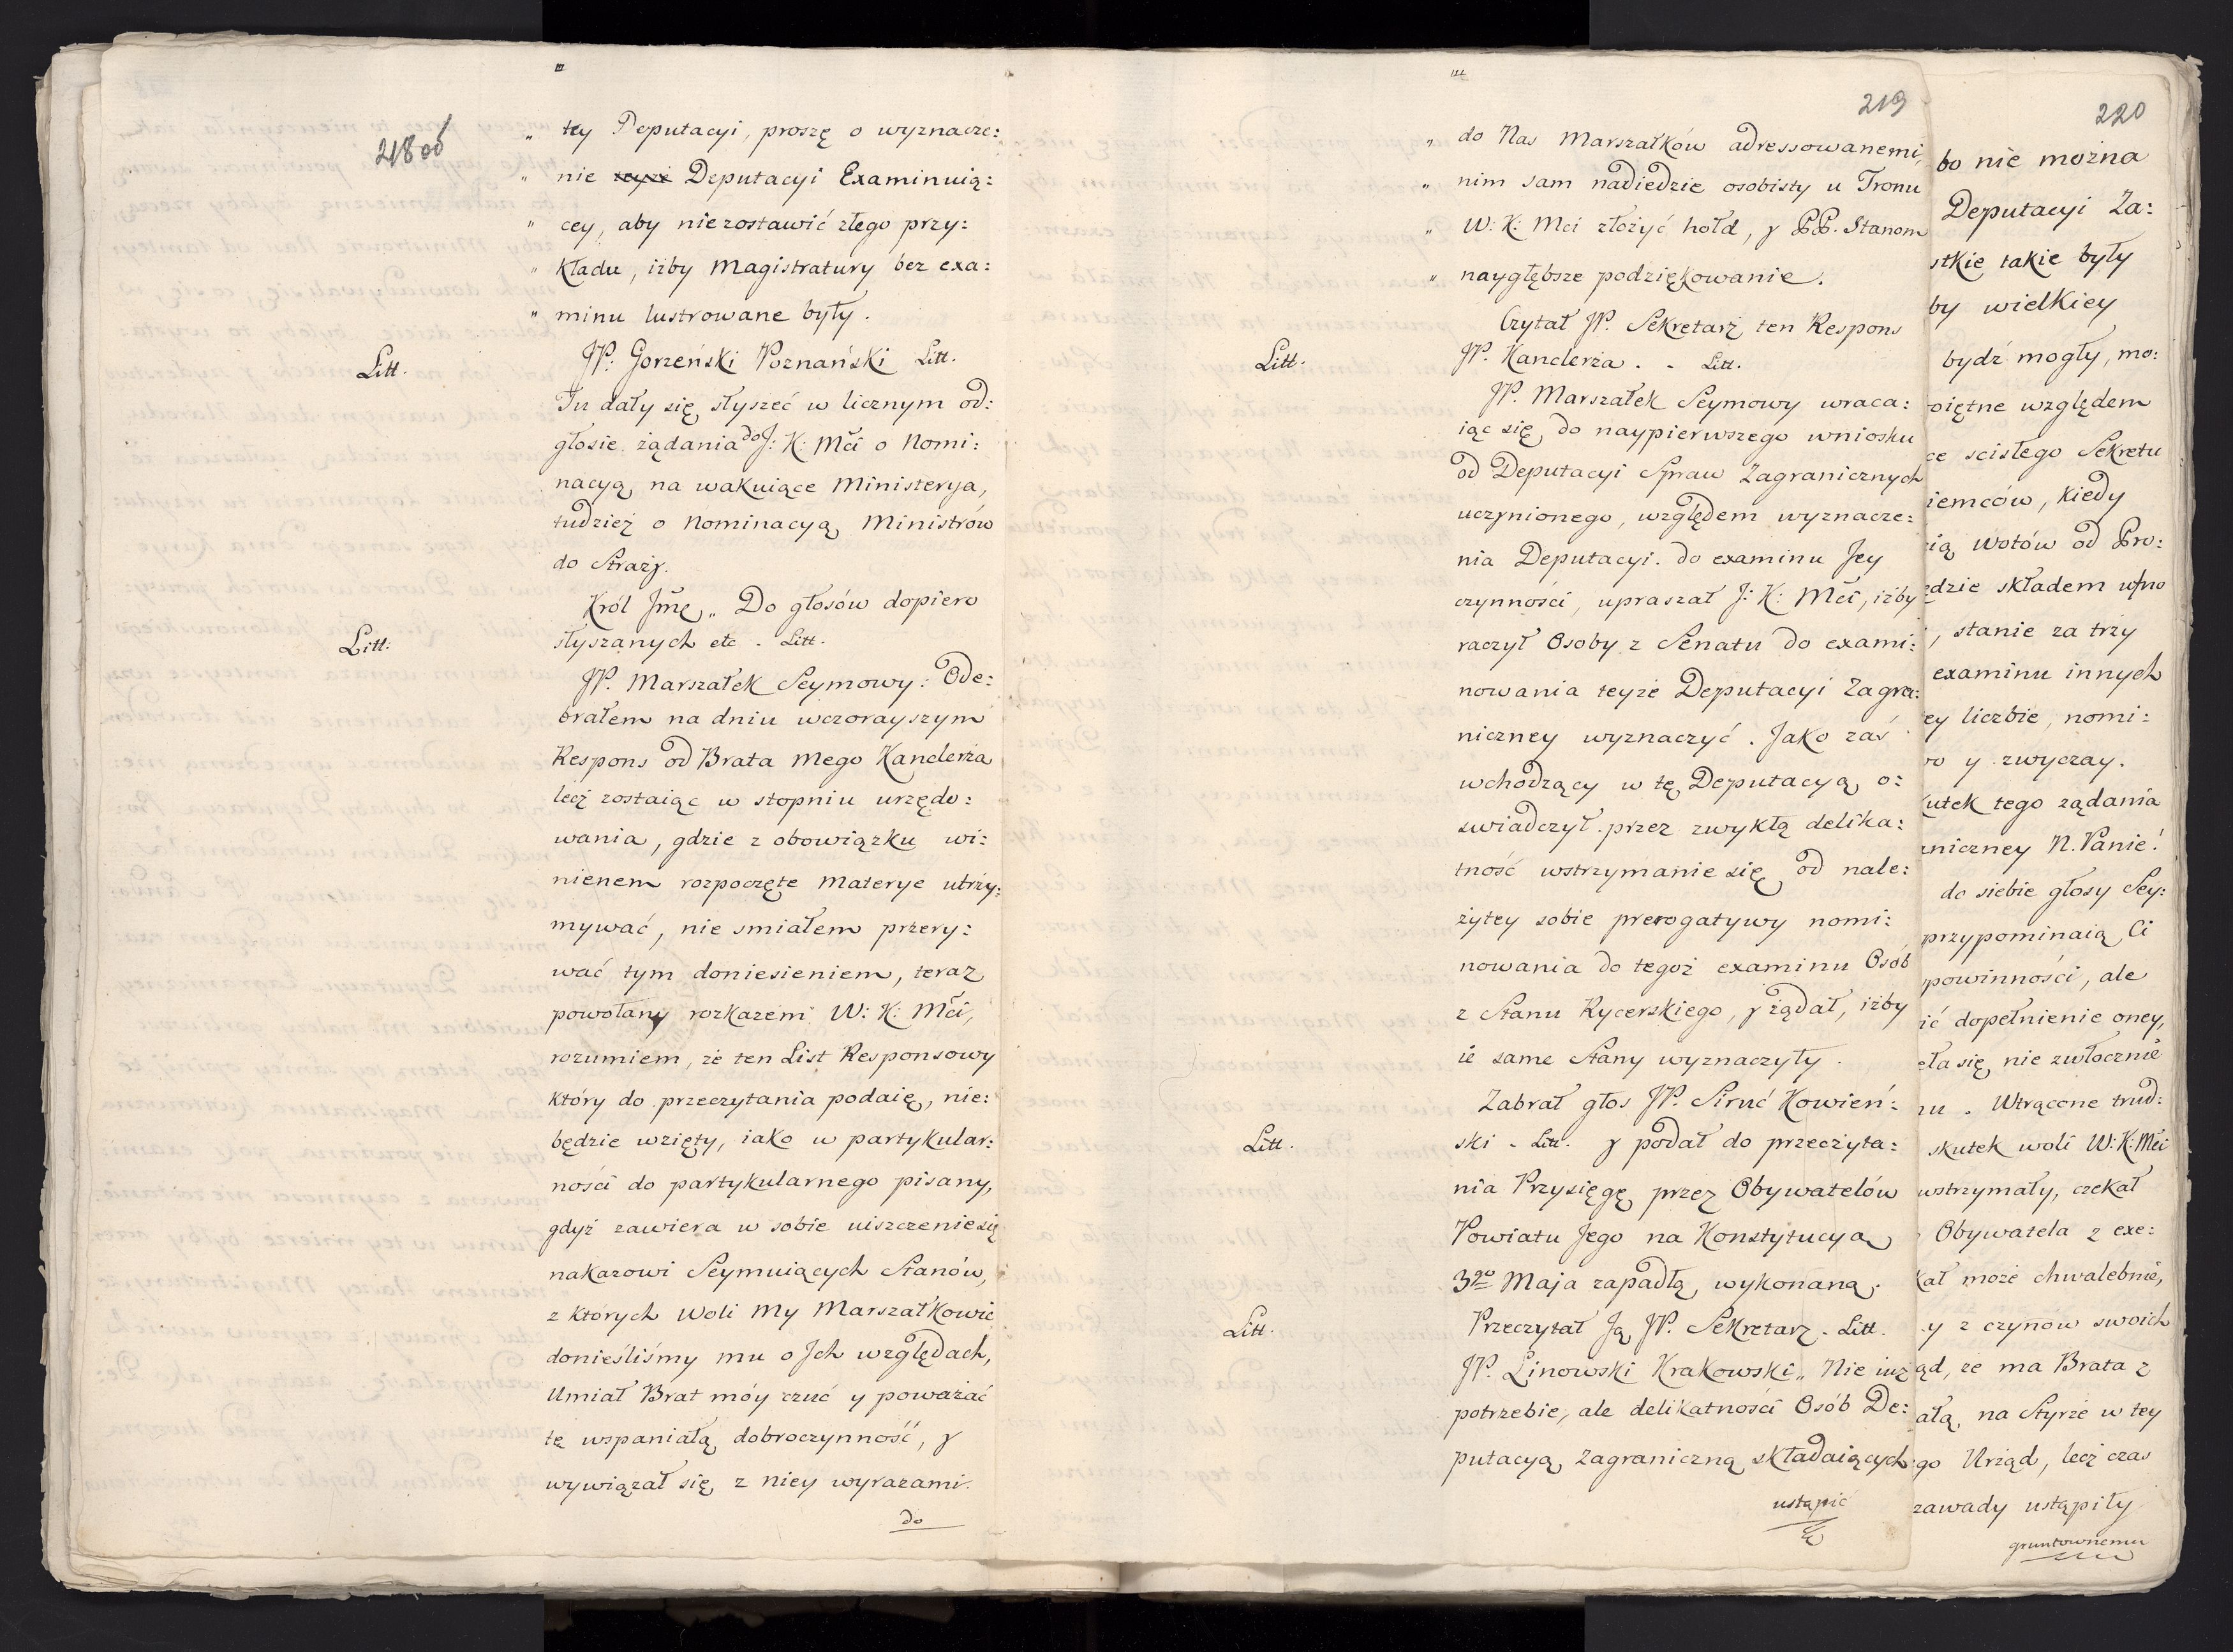 218 od
„ tey Deputacyi, proszę o wyznacze:
„ nie teyże Deputacyi Examinuią:
„ cey, aby niezostawić złego przy:
„ kładu, iżby Magistratury bez exa:
„ minu lustrowane były.
Litt. JP: Gorzeński Poznański Litt.
Tu dały się słyszeć w licznym od:
głosie żądania do J: K: Mći o Nomi:
nacyą na wakuiące Ministerya,
tudzież o Nominacyą Ministrów
do Straży.
Król Jmć „ Do głosów dopiero
Litt: słyszanych etc. Litt.
JP. Marszałek Seymowy: Ode:
brałem na dniu wczorayszym
Respons od Brata mego Kanclerza
lecz zostaiąc w stopniu urzędo:
wania, gdzie z obowiązku wi:
nienem rozpoczęte Materye utrzy:
mywać, nie smiałem przery:
wać tym doniesieniem, teraz
powołany rozkazem W: K: Mći,
rozumiem, że ten List Responsowy
który do przeczytania podaię, nie:
będzie wzięty, iako w partykular:
ności do partykularnego pisany,
gdyż zawiera w sobie uiszczenie się
nakazowi Seymuiących Stanów,
z których Woli My Marszałkowie
donieśliśmy mu o Jch względach,
Umiał Brat móy czuć y poważać
tę wspaniałą dobroczynność, y
wywiązał się z niey wyrazami
do
219
„ do Nas Marszałków adressowanemi,
„ nim sam nadiedzie osobisty u Tronu
„ W: K: Mci złożyć hołd, y PP. Stanom
„ naygłębsze podziękowanie.
Czytał JP. Sekretarz ten Respons
Litt. JP. Kanclerza . . Litt.
JP. Marszałek Seymowy wraca:
iąc się do naypierwszego wniosku
od Deputacyi Spraw Zagranicznych
uczynionego, względem wyznacze:
nia Deputacyi do examinu Jey
czynności, upraszał J: K: Mći, iżby
raczył Osoby z Senatu do exami:
nowania teyże Deputacyi Zagra:
niczney wyznaczyć. Jako zaś
wchodzący w tę Deputacyą o:
swiadczył przez zwykłą delika:
tność wstrzymanie się od nale:
żytey sobie prerogatywy nomi:
nowania do tegoż examinu Osób
z Stanu Rycerskiego, y żądał, iżby
ie same Stany wyznaczyły.
Zabrał głos JP. Siruć Kowień:
Litt. ski - Litt. y podał do przeczyta:
nia Przysięgę przez Obywatelów
Powiatu Jego na Konstytucya
3go Maja zapadłą, wykonaną.
Litt. Przeczytał Ją JP. Sekretarz. Litt.
JP. Linowski Krakowski „ Nie iuż
potrzebie, ale delikatności Osób De:
putacyą Zagraniczną składaiących
ustąpić
220
bo nie można
Deputacyi Za:
stkie takie były
by wielkiey
bydź mogły, mo:
piętne względem
ce scisłego Sekretu
iemców, kiedy
ią wotów od Pro:
dzie składem
, stanie za trzy
examinu innych
ey liczbie, nomi:
wo y zwyczay.
kutek tego żądania
niczney N. Panie!
do siebie głosy Sey:
przypominaią Ci
powinności, ale
ić dopełnienie oney,
eła się niezwłocznie
nu. Wtrącone trud:
skutek woli W: K: Mći
wstrzymały, czekał
Obywatela z exe:
kał może chwalebnie,
y z czynów swoich
ąd, że ma Brata z
ałą, na Styrze w tey
go Urząd, lecz czas
zawady ustąpiły
gruntownemu